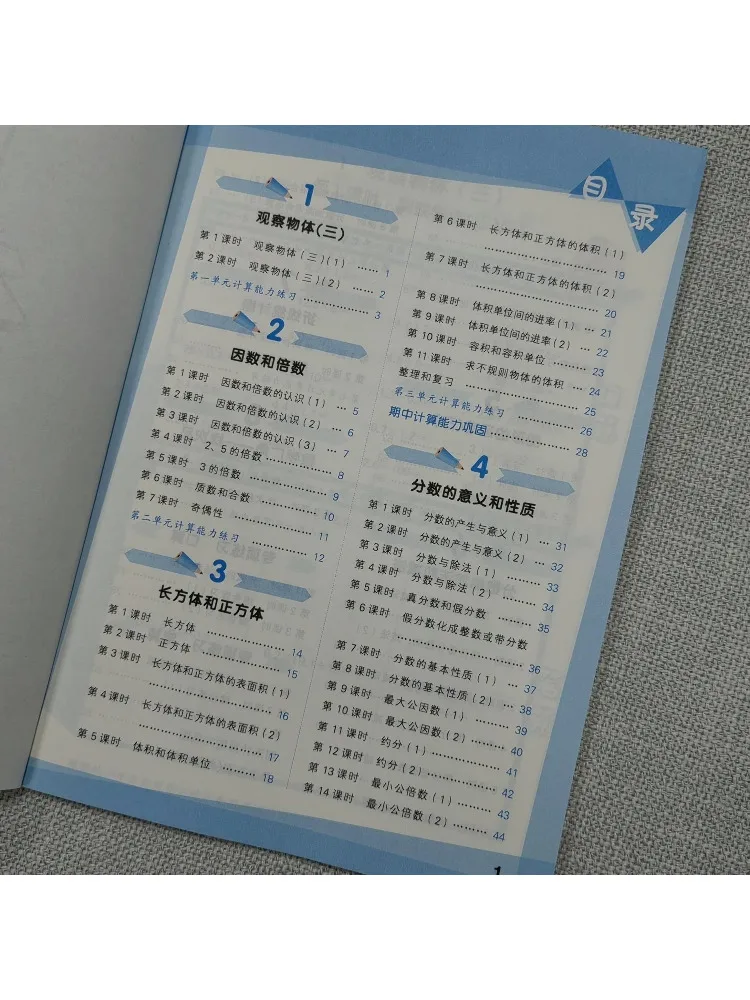 目录
1
观察物体(三)
第1课时 观察物体(三)(1) …… 1
第2课时 观察物体(三)(2) …… 2
第一单元计算能力练习 …… 3
2
因数和倍数
第1课时 因数和倍数的认识(1) … 5
第2课时 因数和倍数的认识(2) … 6
第3课时 因数和倍数的认识(3) … 7
第4课时 2、5的倍数 …… 8
第5课时 3的倍数 …… 9
第6课时 质数和合数 …… 10
第7课时 奇偶性 …… 11
第二单元计算能力练习 …… 12
3
长方体和正方体
第1课时 长方体 …… 14
第2课时 正方体 …… 15
第3课时 长方体和正方体的表面积(1)
…… 16
第4课时 长方体和正方体的表面积(2)
…… 17
第5课时 体积和体积单位 …… 18
第6课时 长方体和正方体的体积(1)
…… 19
第7课时 长方体和正方体的体积(2)
…… 20
第8课时 体积单位间的进率(1) … 21
第9课时 体积单位间的进率(2) … 22
第10课时 容积和容积单位 …… 23
第11课时 求不规则物体的体积 … 24
整理和复习 …… 25
第三单元计算能力练习 …… 26
期中计算能力巩固 …… 28
4
分数的意义和性质
第1课时 分数的产生与意义(1) … 31
第2课时 分数的产生与意义(2) … 32
第3课时 分数与除法(1) …… 33
第4课时 分数与除法(2) …… 34
第5课时 真分数和假分数 …… 35
第6课时 假分数化成整数或带分数
…… 36
第7课时 分数的基本性质(1) … 37
第8课时 分数的基本性质(2) … 38
第9课时 最大公因数(1) …… 39
第10课时 最大公因数(2) …… 40
第11课时 约分(1) …… 41
第12课时 约分(2) …… 42
第13课时 最小公倍数(1) …… 43
第14课时 最小公倍数(2) …… 44
1